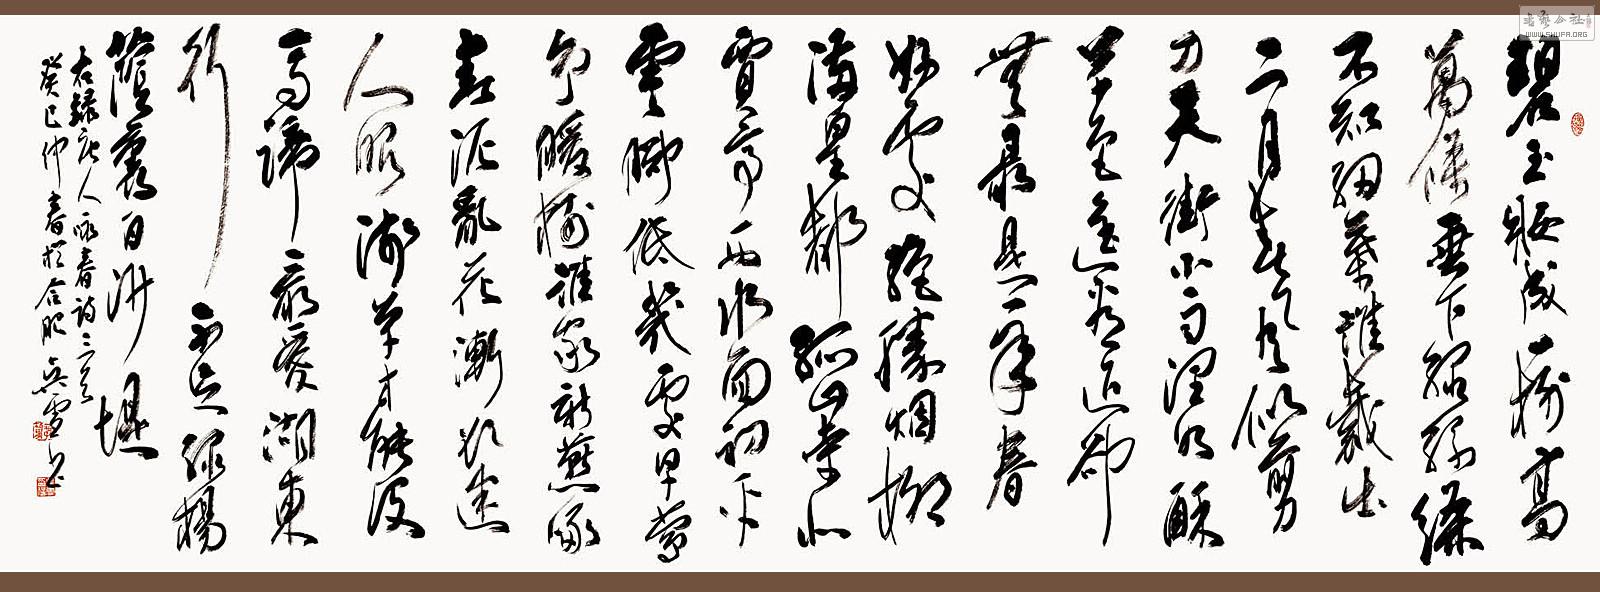 碧玉妝成一樹高
萬條垂下綠絲絛
不知細葉誰裁出
二月春風似剪
刀天街小雨潤如酥
草色遙看近卻
無最是一年春
好處絕勝煙柳
滿皇都孤山寺北
賈亭西水面初平
雲腳低幾處早鶯
爭暖樹誰家新燕啄
春泥亂花漸欲迷
人眼淺草才能沒
馬蹄最愛湖東
行不足綠楊
蔭裏白沙堤
右錄唐人詠春詩三首
癸巳仲春於合肥吳雪書
书艺公社
WWW.SHUFA.ORG